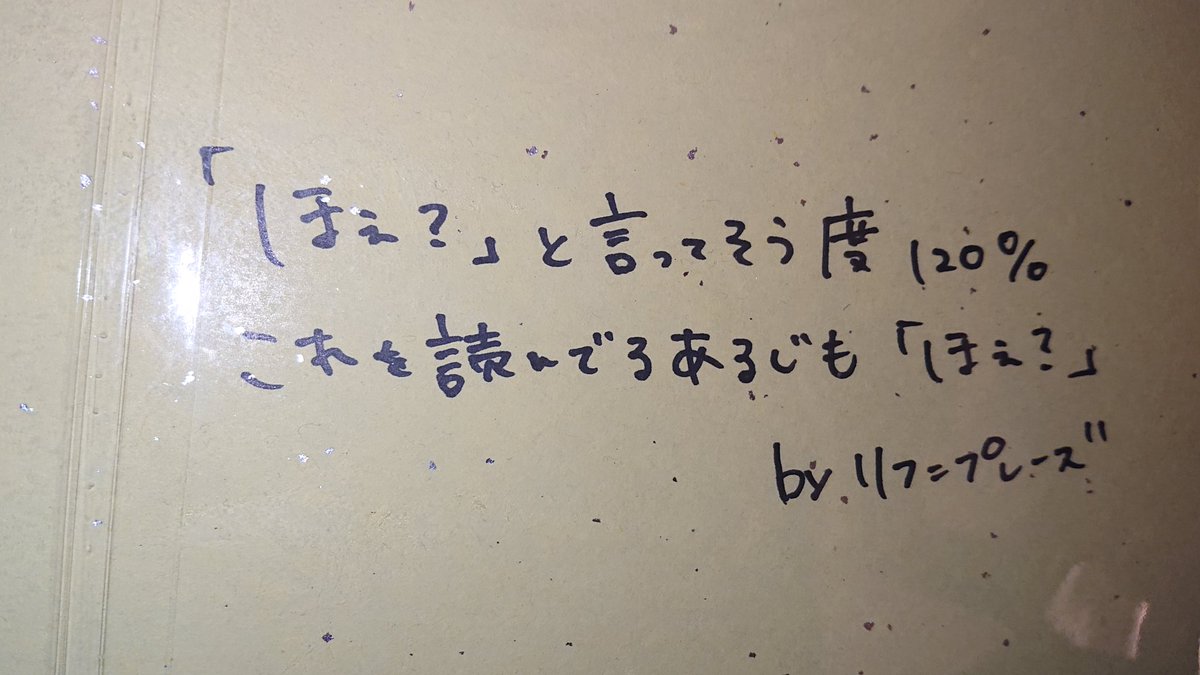 「ほぇ?」と言ってそう度120%
これを読んでるあるじも「ほぇ?」
by リフ=プレーズ